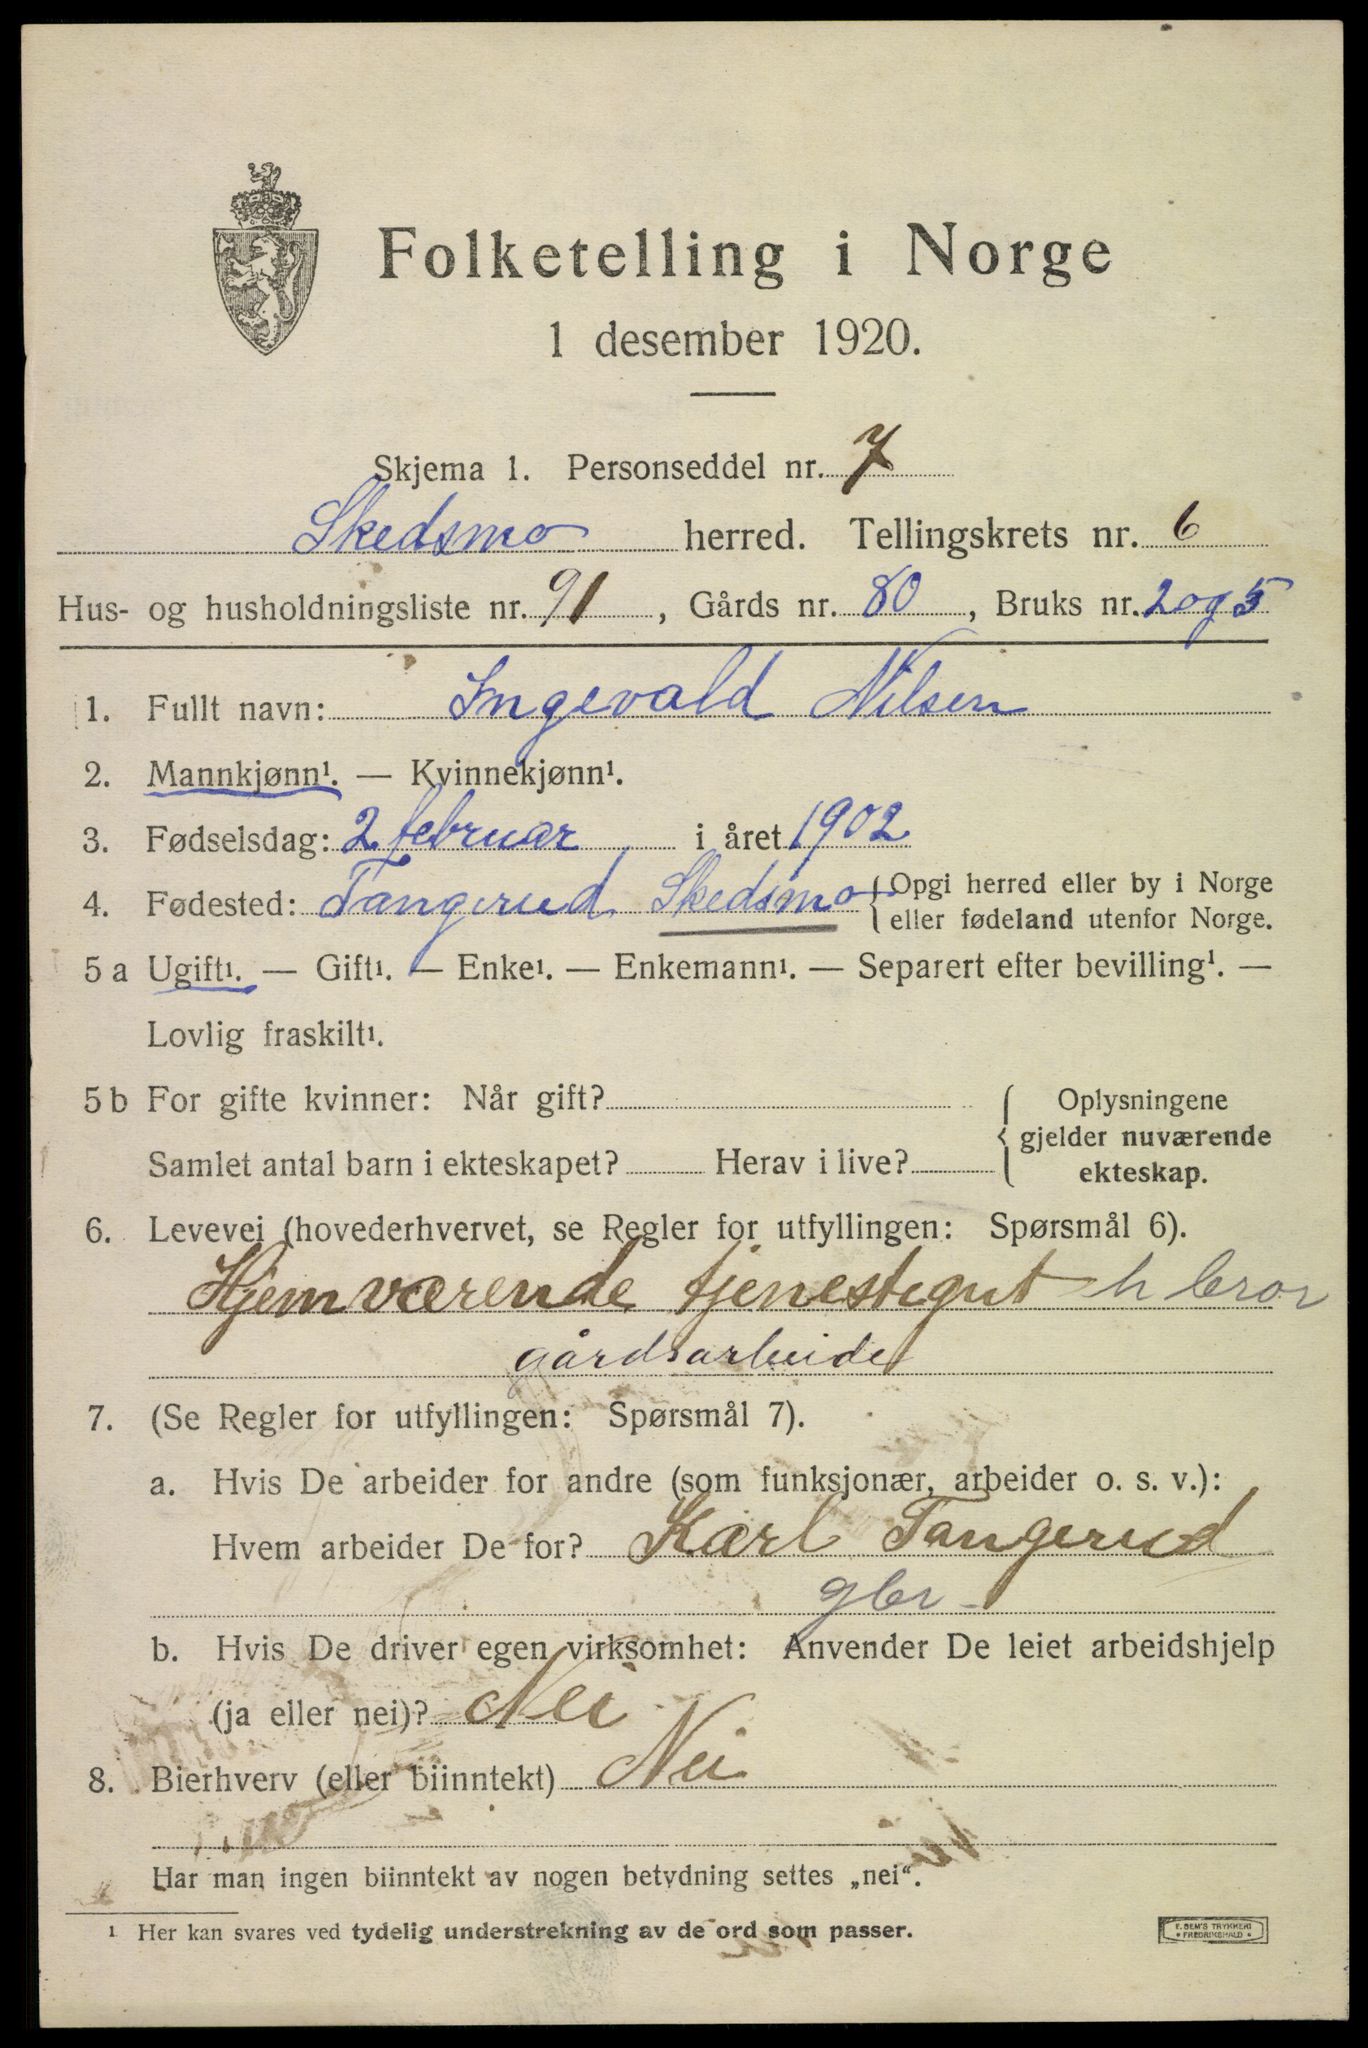 Folketelling i Norge
1 desember 1920.
Skjema 1. Personseddel nr. 7
Skedsmo herred. Tellingskrets nr. 6
Hus- og husholdningsliste nr. 91, Gårds nr. 80, Bruks nr. 2 og 5
1. Fullt navn: Ingevald Nilsen
2. Mannkjønn¹. — Kvinnekjønn¹.
3. Fødselsdag: 2 februar i året 1902
4. Fødested: Tangerud Skedsmo { Opgi herred eller by i Norge
eller fødeland utenfor Norge.
5 a Ugift¹. — Gift¹. — Enke¹. — Enkemann¹. — Separert efter bevilling¹. —
Lovlig fraskilt¹.
5 b For gifte kvinner: Når gift?
Samlet antal barn i ekteskapet? Herav i live?
{ Oplysningene
gjelder nuværende
ekteskap.
6. Levevei (hovederhvervet, se Regler for utfyllingen: Spørsmål 6).
Hjemværende tjenestegut h bror
gårdsarbeide
7. (Se Regler for utfyllingen: Spørsmål 7).
a. Hvis De arbeider for andre (som funksjonær, arbeider o. s. v.):
Hvem arbeider De for? Karl Tangerud
gbr -
b. Hvis De driver egen virksomhet: Anvender De leiet arbeidshjelp
(ja eller nei)? Nei
8. Bierhverv (eller biinntekt) Nei
Har man ingen biinntekt av nogen betydning settes „nei“.
¹ Her kan svares ved tydelig understrekning av de ord som passer.
E. SEM'S TRYKKERI
FREDRIKSHALD